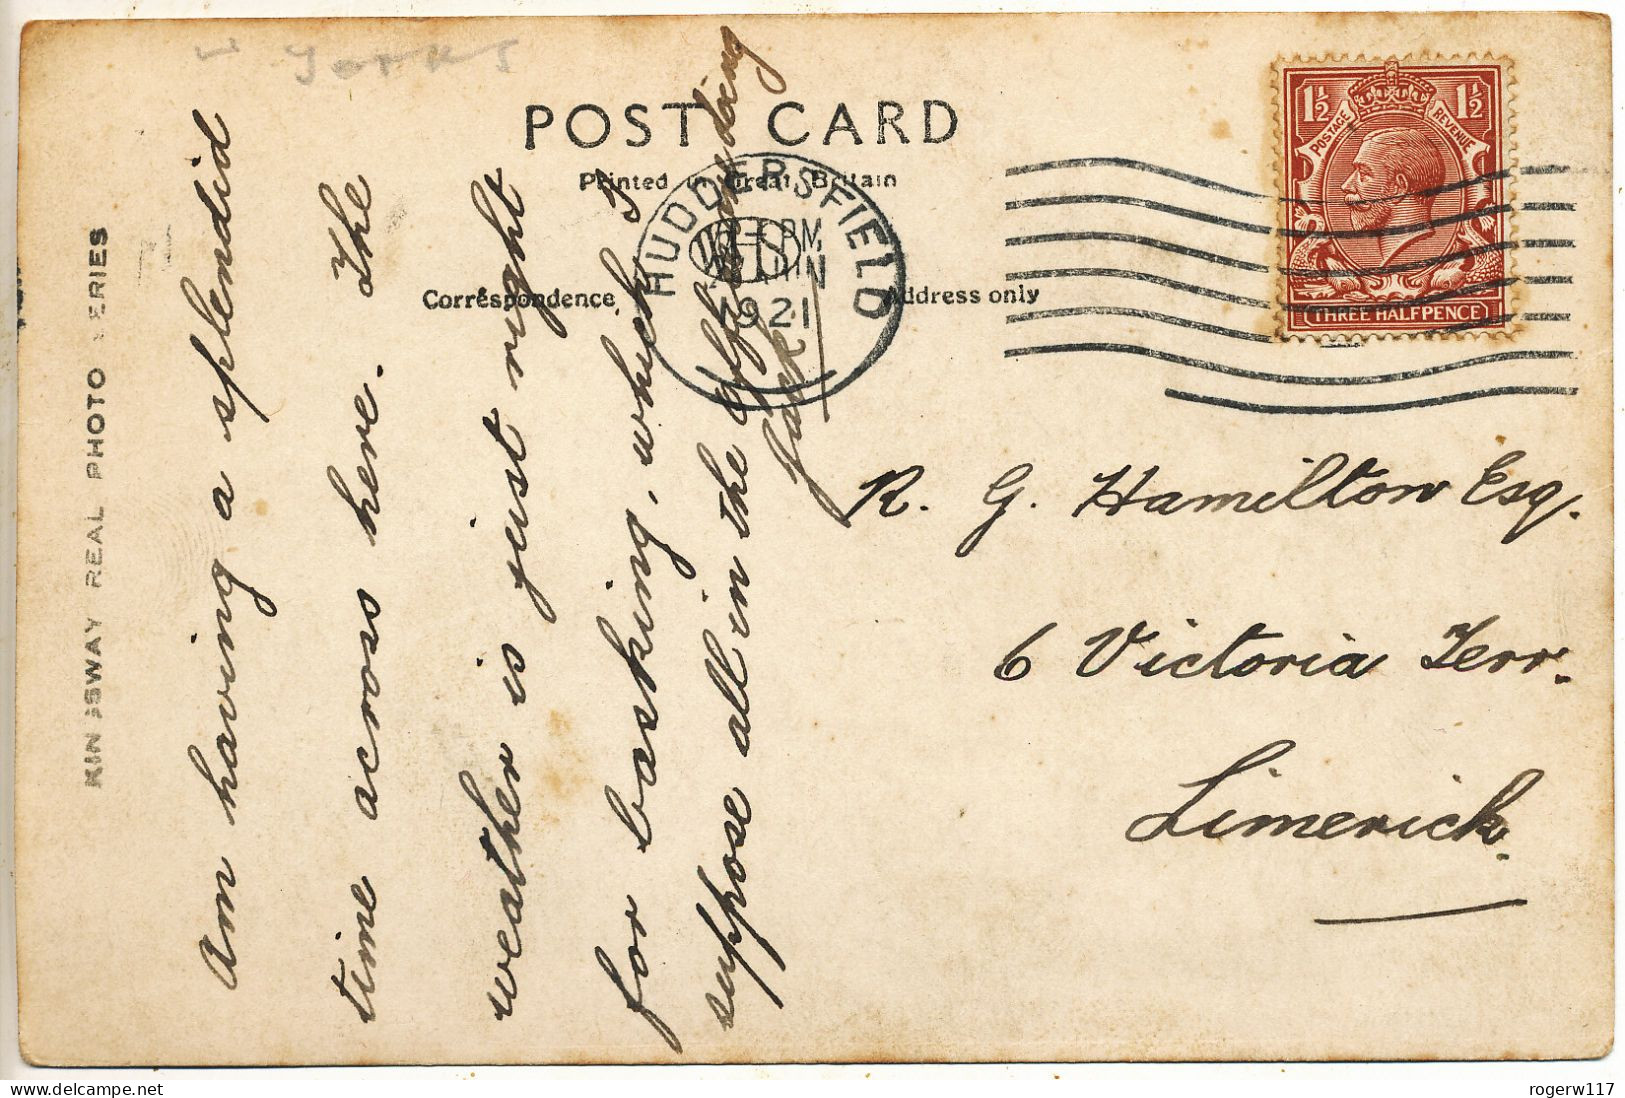 W Yorks
POST CARD
Printed in Great Britain
Correspondence
Address only
HUDDERSFIELD
PM
1921
1½ 1½
POSTAGE REVENUE
THREE HALFPENCE
KINGSWAY REAL PHOTO SERIES
Am having a splendid
time across here. The
weather is just right
for basking, which I
suppose all in the
Jack
R. G. Hamilton Esq.
6 Victoria Terr.
Limerick.
delcampe.net
rogerw117